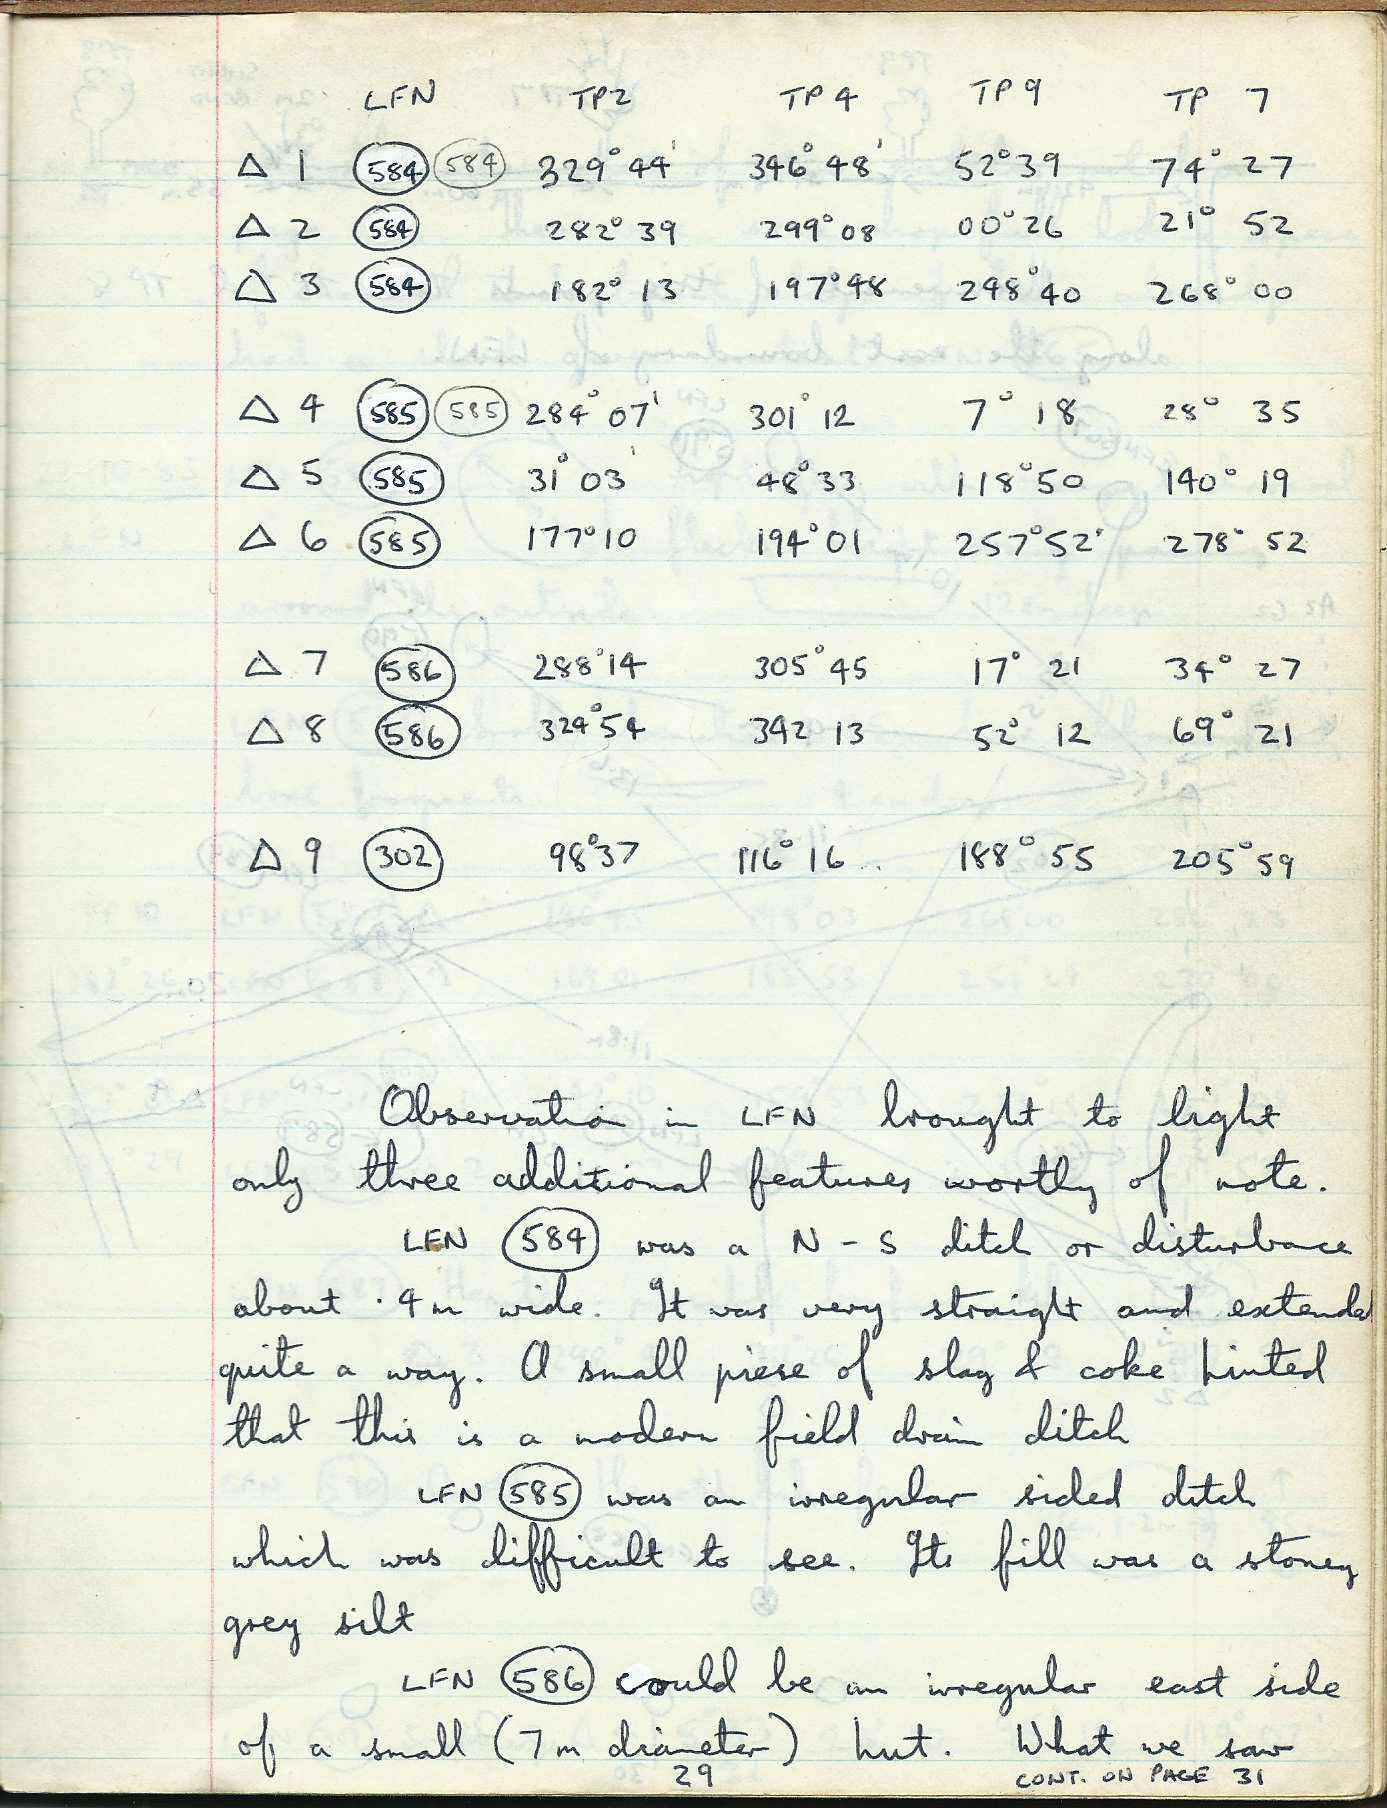 LFN TP2 TP4 TP9 TP 7
△ 1 584 584 329° 44' 346° 48' 52° 39 74° 27
△ 2 584 282° 39 299° 08 00° 26 21° 52
△ 3 584 182° 13 197° 48 248° 40 268° 00
△ 4 585 585 284° 07' 301° 12 7° 18 28° 35
△ 5 585 31° 03' 48° 33 118° 50 140° 19
△ 6 585 177° 10 194° 01 257° 52' 278° 52
△ 7 586 288° 14 305° 45 17° 21 34° 27
△ 8 586 324° 54 342 13 52° 12 69° 21
△ 9 302 98° 37 116° 16 188° 55 205° 59
Observation in LFN brought to light
only three additional features worthy of note.
LFN 584 was a N - S ditch or disturbance
about .4m wide. It was very straight and extended
quite a way. A small piese of slag & coke hinted
that this is a modern field drain ditch
LFN 585 was an irregular sided ditch
which was difficult to see. Its fill was a stoney
grey silt
LFN 586 could be an irregular east side
of a small (7m diameter) hut. What we saw
29 CONT. ON PAGE 31